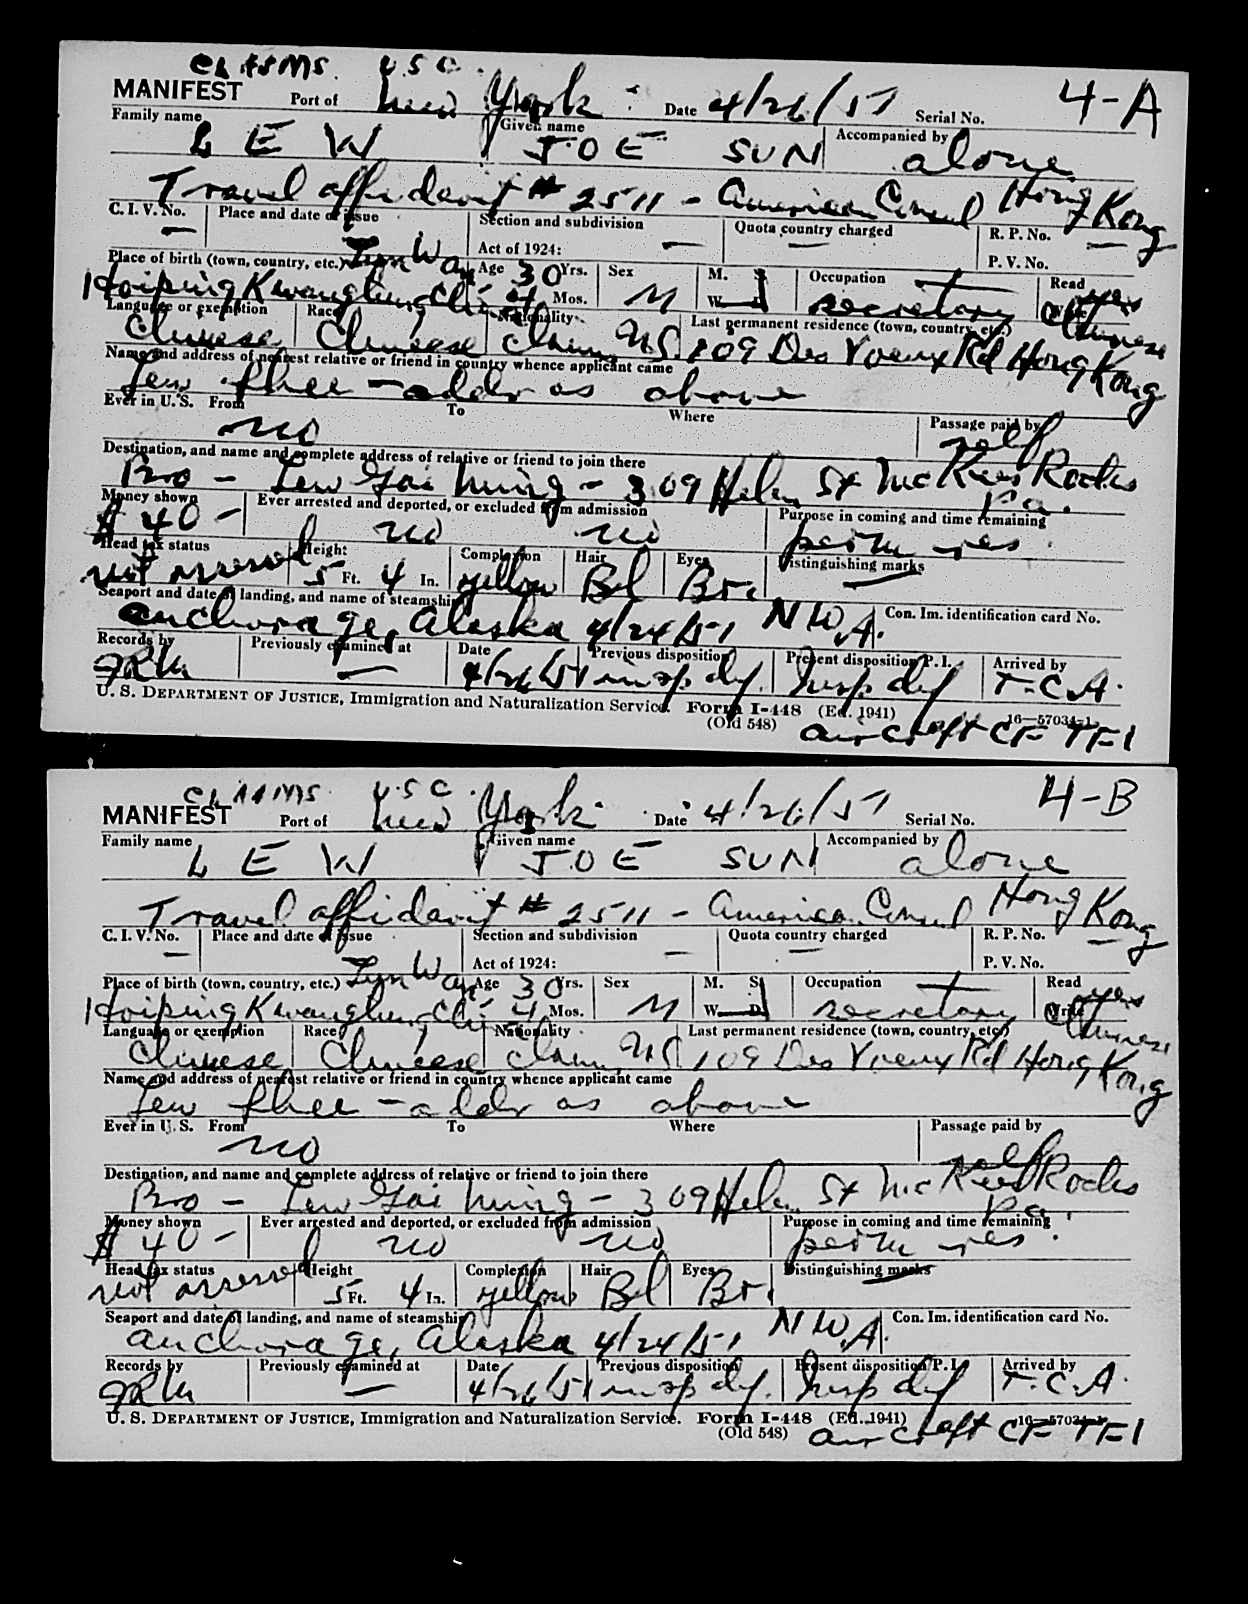 CLAIMS U.S.C.
MANIFEST Port of New York Date 4/26/51 Serial No. 4-A
Family name Given name Accompanied by
LEW JOE SUN alone
Travel affidavit # 2511 - American Consul Hong Kong
C. I. V. No. Place and date of issue Section and subdivision Quota country charged R. P. No.
— Act of 1924: — — — P. V. No.
Place of birth (town, country, etc.) Age 30 Yrs. Sex M. S. Occupation Read yes
Hoiping Kwangtung China 4 Mos. M W. D. secretary Write Chinese
Language or exemption Race Nationality Last permanent residence (town, country, etc.)
Chinese Chinese claims U.S. 109 Des Voeux Rd Hong Kong
Name and address of nearest relative or friend in country whence applicant came
Lew - addr as above
Ever in U. S. From To Where Passage paid by
no self
Destination, and name and complete address of relative or friend to join there
Bro - Lew Gai Ming - 309 Helen St McKees Rocks Pa.
Money shown Ever arrested and deported, or excluded from admission Purpose in coming and time remaining
$40- no no perm res.
Head tax status Height Complexion Hair Eyes Distinguishing marks
not assessed 5 Ft. 4 In. yellow Bl Br. —
Seaport and date of landing, and name of steamship Con. Im. identification card No.
Anchorage, Alaska 4/24/51 N W A.
Records by Previously examined at Date Previous disposition Present disposition P. I. Arrived by
— 4/26/51 insp def. Insp def T.C.A.
U. S. DEPARTMENT OF JUSTICE, Immigration and Naturalization Service. Form I-448 (Ed. 1941) 16—57034-1
(Old 548) aircraft CF TFI
CLAIMS U.S.C.
MANIFEST Port of New York Date 4/26/51 Serial No. 4-B
Family name Given name Accompanied by
LEW JOE SUN alone
Travel affidavit # 2511 - American Consul Hong Kong
C. I. V. No. Place and date of issue Section and subdivision Quota country charged R. P. No.
— Act of 1924: — — — P. V. No.
Place of birth (town, country, etc.) Age 30 Yrs. Sex M. S. Occupation Read yes
Hoiping Kwangtung China 4 Mos. M W. D. secretary Write Chinese
Language or exemption Race Nationality Last permanent residence (town, country, etc.)
Chinese Chinese claims U.S. 109 Des Voeux Rd Hong Kong
Name and address of nearest relative or friend in country whence applicant came
Lew - addr as above
Ever in U. S. From To Where Passage paid by
no self
Destination, and name and complete address of relative or friend to join there
Bro - Lew Gai Ming - 309 Helen St McKees Rocks Pa.
Money shown Ever arrested and deported, or excluded from admission Purpose in coming and time remaining
$40- no no perm res.
Head tax status Height Complexion Hair Eyes Distinguishing marks
not assessed 5 Ft. 4 In. yellow Bl Br. —
Seaport and date of landing, and name of steamship Con. Im. identification card No.
Anchorage, Alaska 4/24/51 N W A.
Records by Previously examined at Date Previous disposition Present disposition P. I. Arrived by
— 4/26/51 insp def. Insp def T.C.A.
U. S. DEPARTMENT OF JUSTICE, Immigration and Naturalization Service. Form I-448 (Ed. 1941) 16—57034-1
(Old 548) aircraft CF TFI